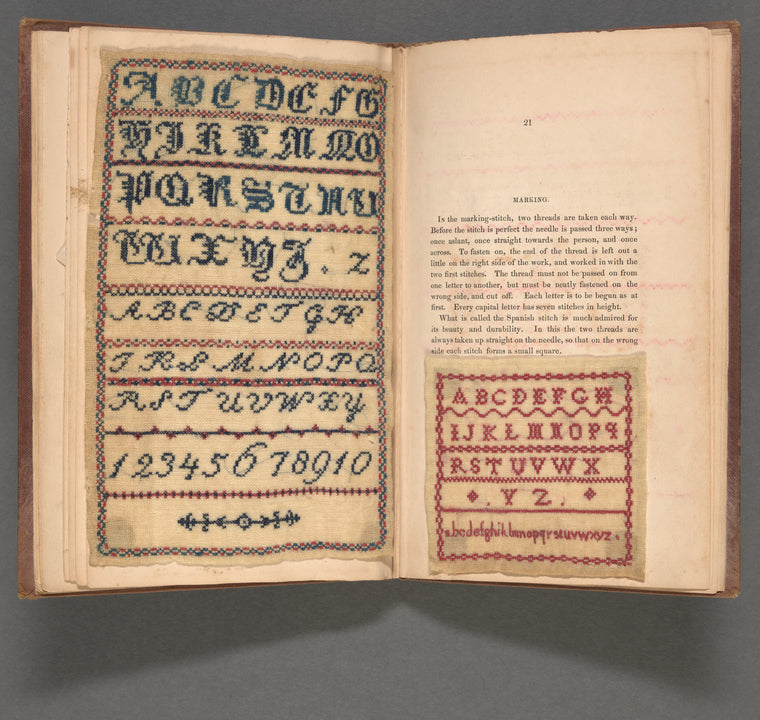 A B C D E F G
H I K L M N O
P Q R S T U
W X Y Z . Z
A B C D E F G H
I K L M N O P Q
R S T U V W X Y
1 2 3 4 5 6 7 8 9 10
21
MARKING.
In the marking-stitch, two threads are taken each way.
Before the stitch is perfect the needle is passed three ways;
once aslant, once straight towards the person, and once
across. To fasten on, the end of the thread is left out a
little on the right side of the work, and worked in with the
two first stitches. The thread must not be passed on from
one letter to another, but must be neatly fastened on the
wrong side, and cut off. Each letter is to be begun as at
first. Every capital letter has seven stitches in height.
What is called the Spanish stitch is much admired for
its beauty and durability. In this the two threads are
always taken up straight on the needle, so that on the wrong
side each stitch forms a small square.
A B C D E F G H
I J K L M N O P q
R S T U V W X
. Y Z .
a b c d e f g h i k l m n o p q r s t u v w x y z .